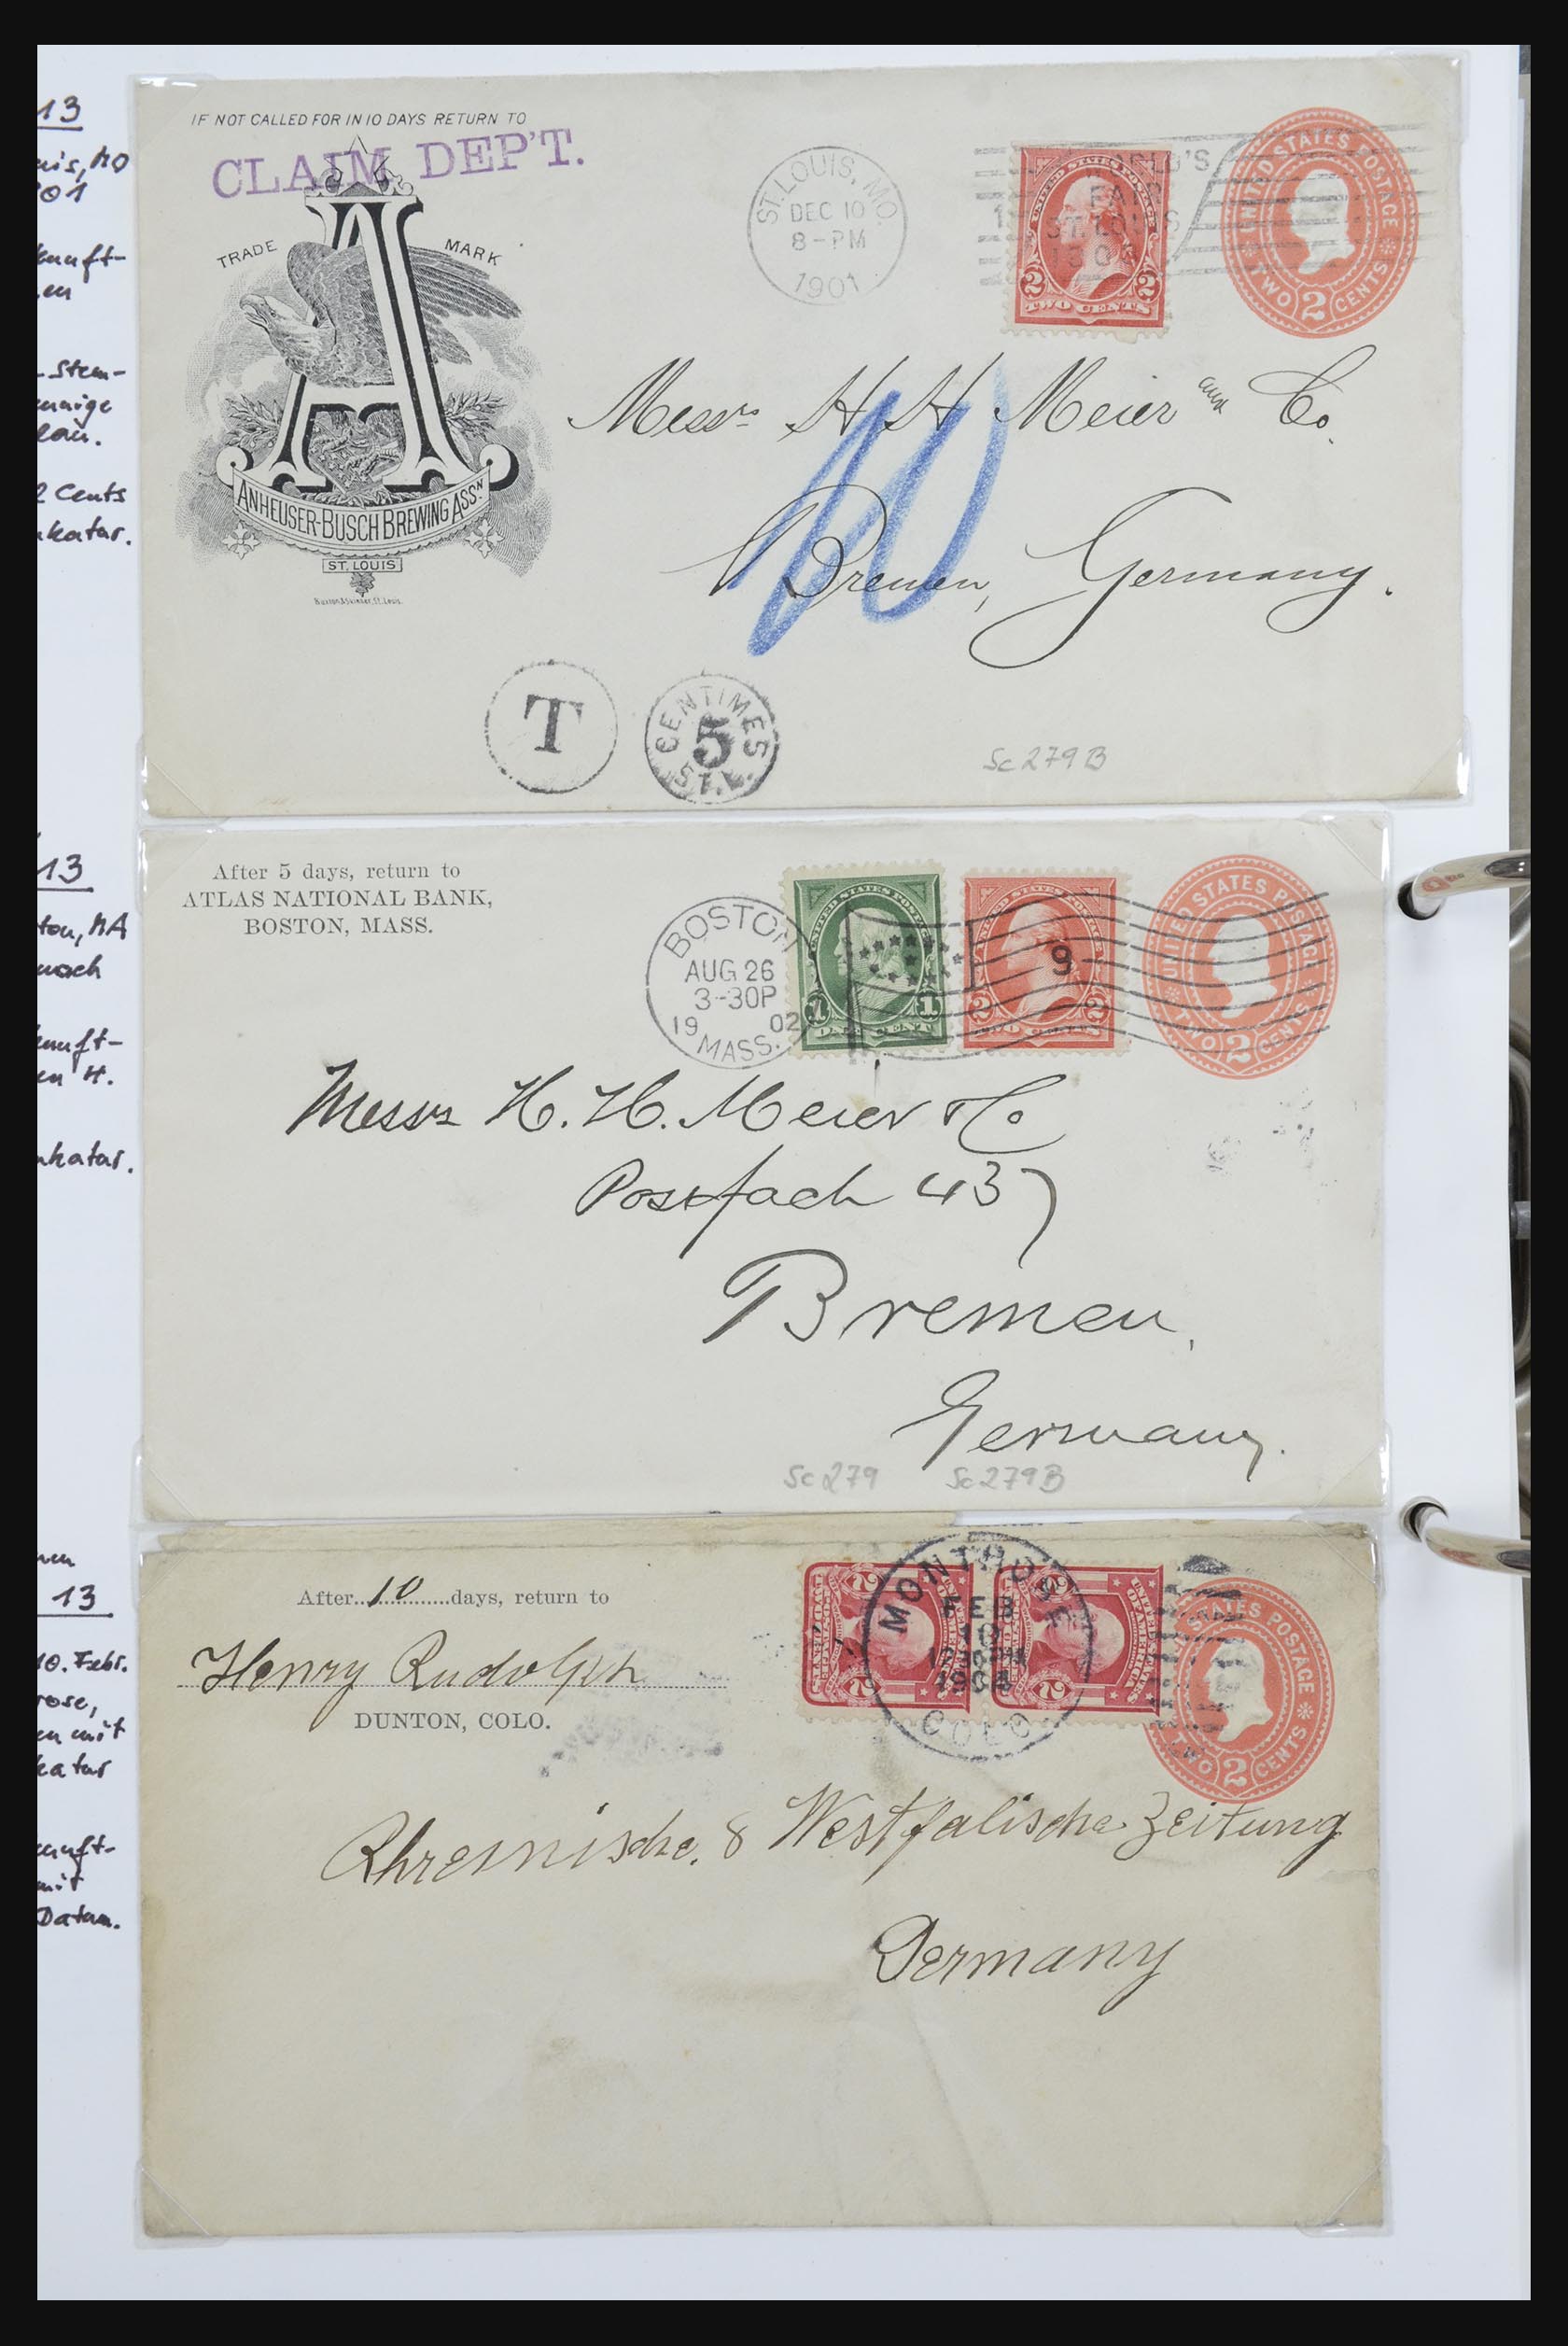 13
is, MO
01
kunft-
en
Stem-
2 Cents
IF NOT CALLED FOR IN 10 DAYS RETURN TO
CLAIM DEP'T.
TRADE MARK
A
ANHEUSER-BUSCH BREWING ASS'N
ST. LOUIS
ST. LOUIS, MO.
DEC 10
8-PM
1901
UNITED STATES POSTAGE
2 2
TWO CENTS
UNITED STATES POSTAGE
TWO 2 CENTS
Messrs H H Meier and Co.
10
Bremen, Germany.
T
CENTIMES
5
ST. L.
Sc 279B
13
ton, MA
nach
kunft-
en H.
After 5 days, return to
ATLAS NATIONAL BANK,
BOSTON, MASS.
BOSTON
AUG 26
3-30P
19 02
MASS.
UNITED STATES POSTAGE
1 1
ONE CENT
9
2 2
TWO CENTS
UNITED STATES POSTAGE
TWO 2 CENTS
Messrs H. H. Meier & Co
Postfach 437
Bremen,
Germany.
Sc 279 Sc 279B
13
10. Febr.
rose,
en mit
kunft-
mit
Datum.
After 10 days, return to
Henry Rudolph
DUNTON, COLO.
MONTROSE
FEB
10
COLO
STATES POSTAGE
TWO 2 CENTS
Rhreinische & Westfalische Zeitung
Germany